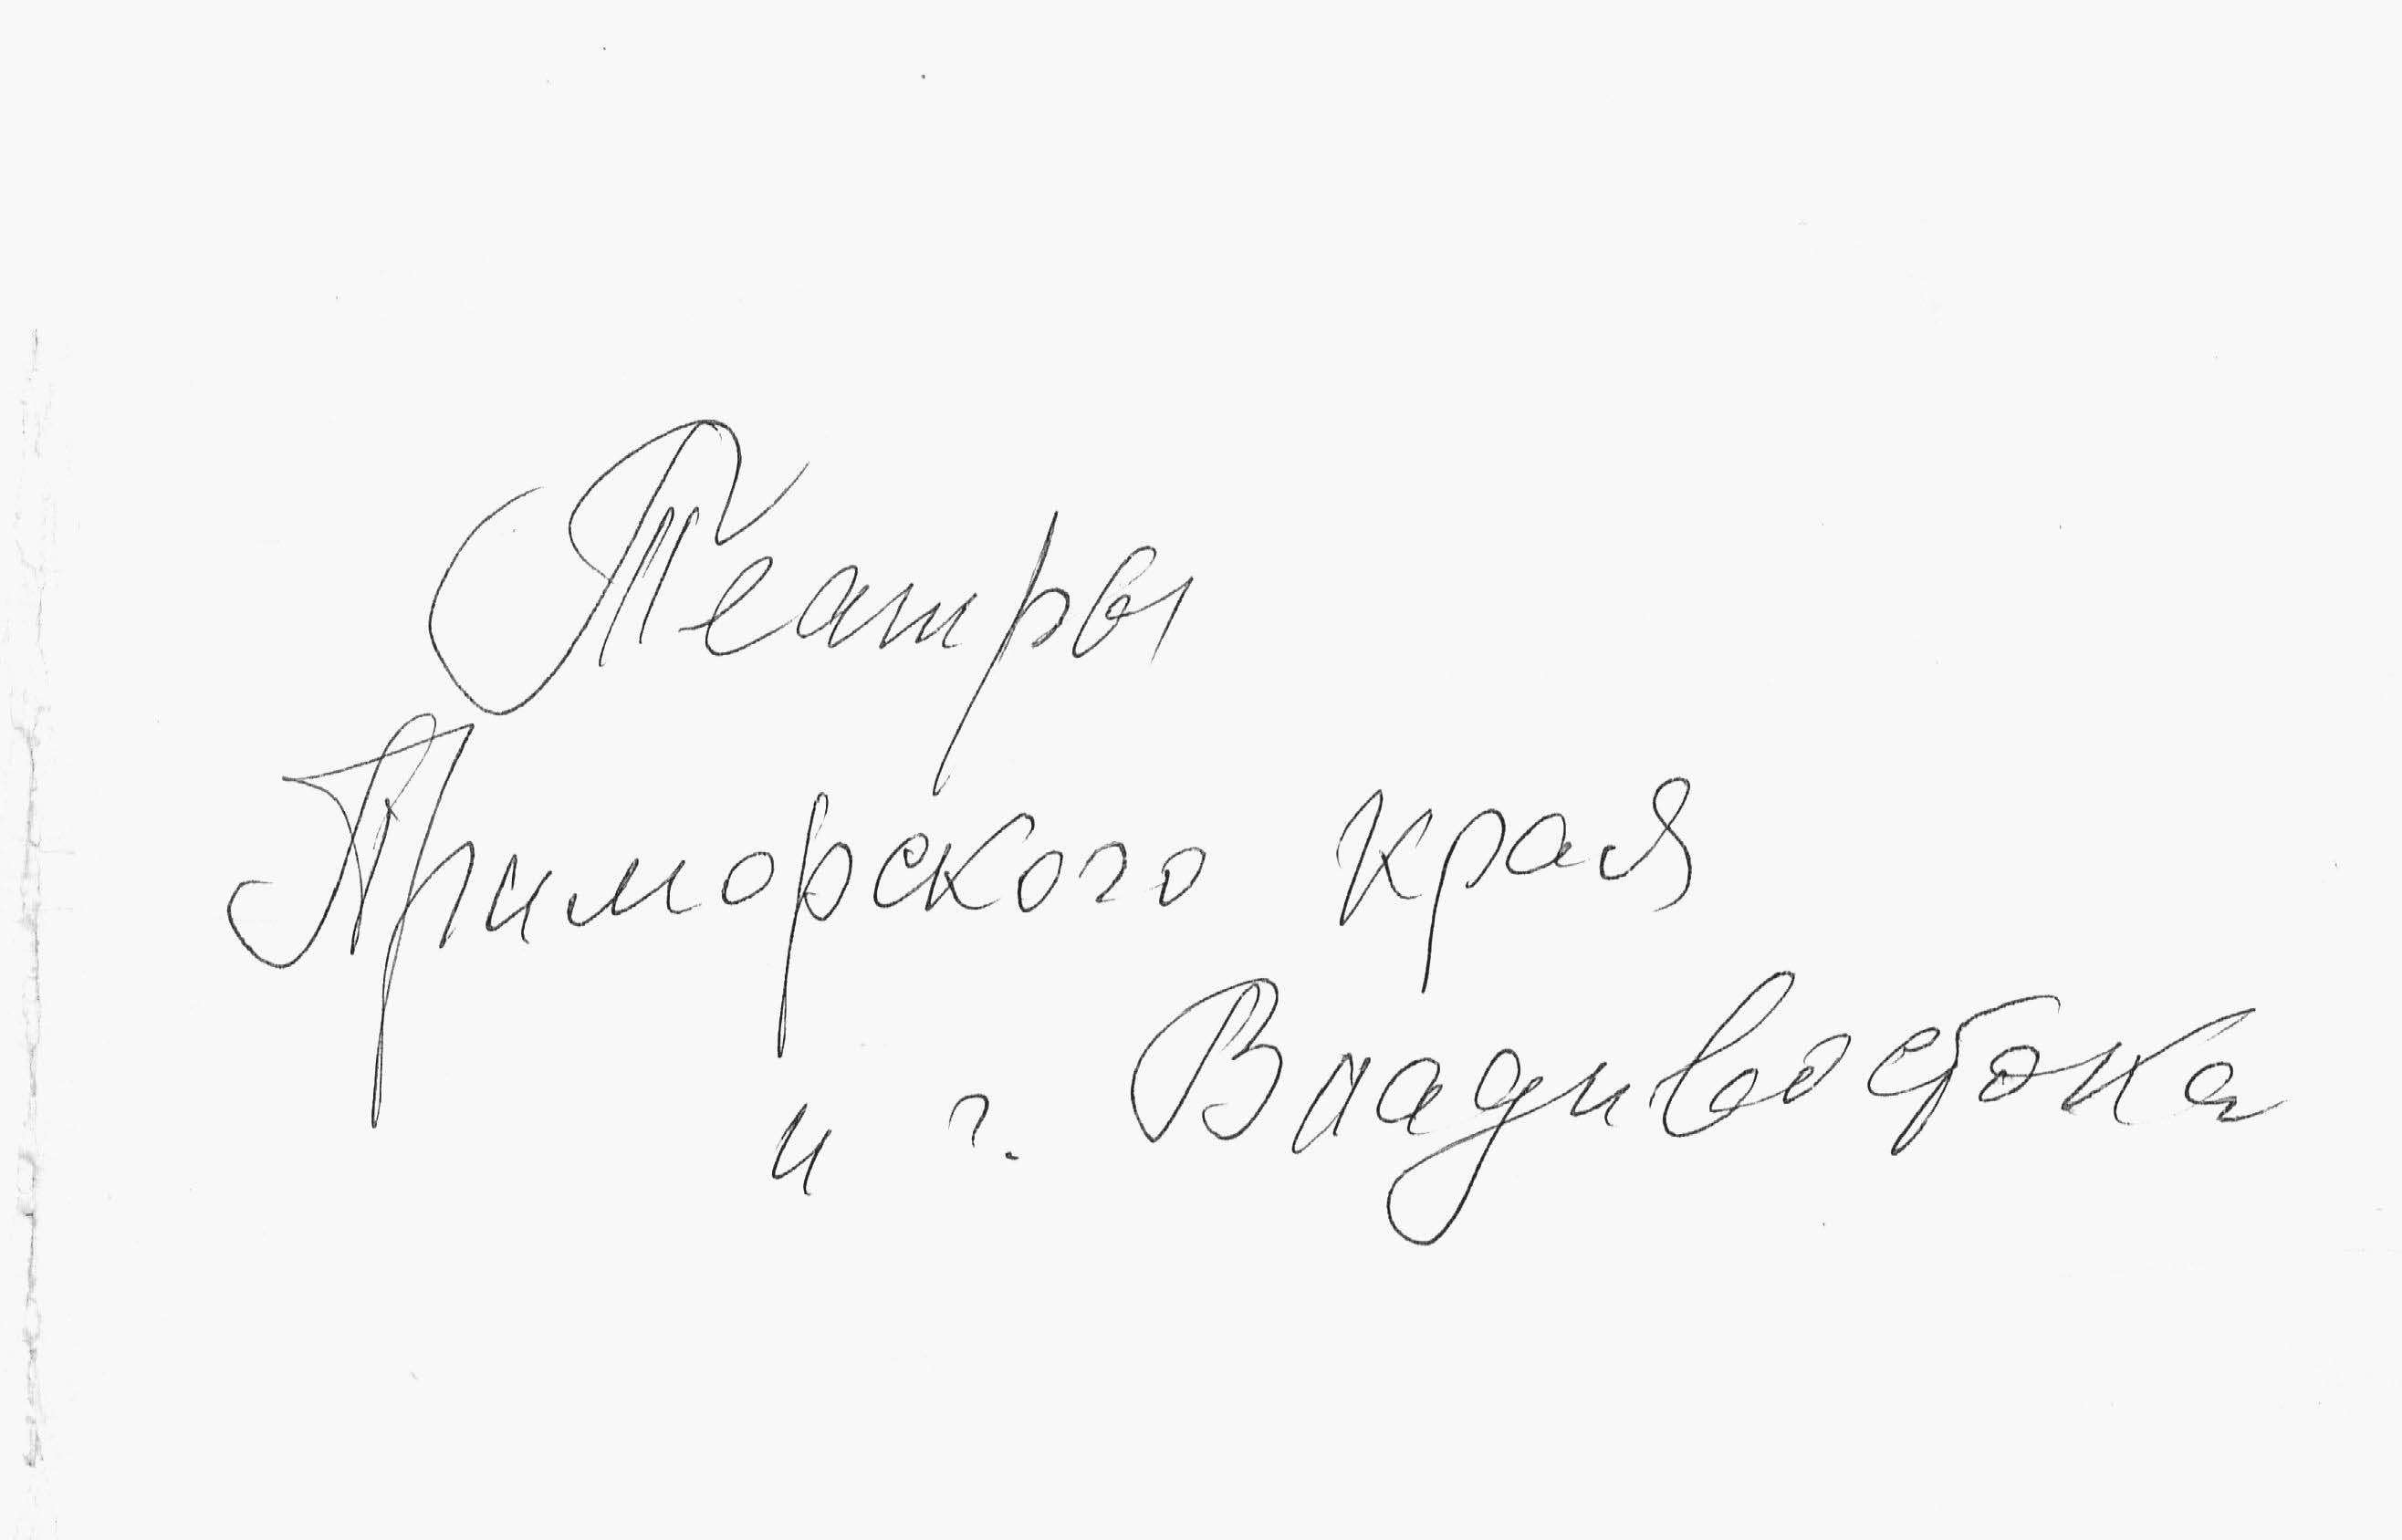 Театры
Приморского края
и г. Владивостока